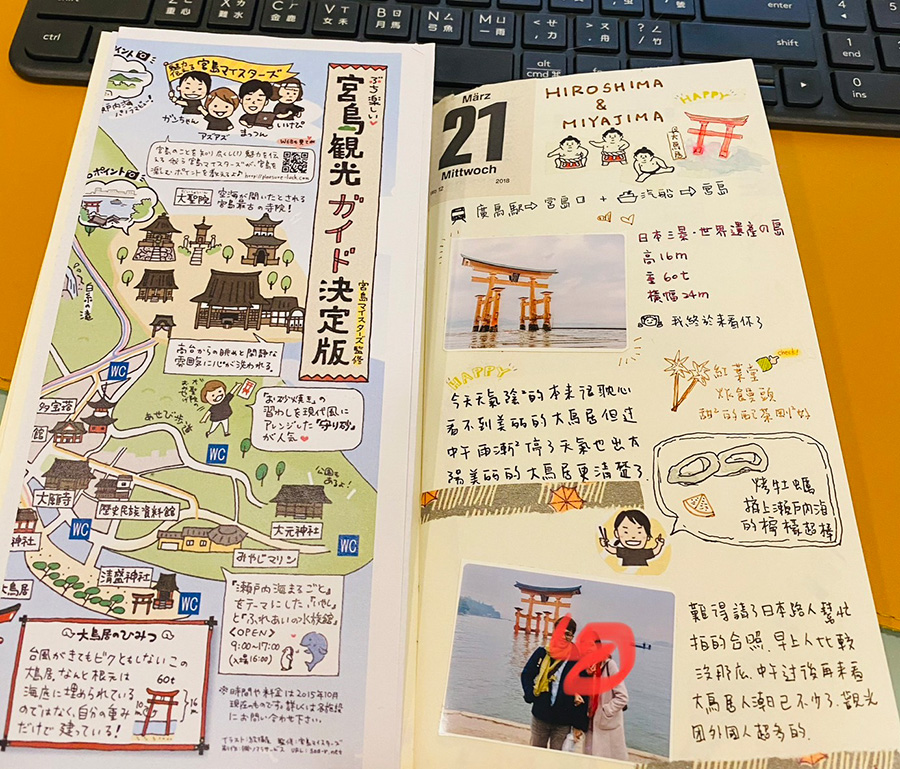 重心
金鹿
V
女禾
B
月馬
N
弓魚
M
一雨
enter
shift
ctrl
alt
cmd ⌘
end
0
ins
魅力伝える宮島マイスターズ
がんちゃん
アズアズ
まっつん
いけぴ
ぷち楽しい♥
宮島観光ガイド決定版
宮島マイスターズ監修
大聖院
空海が開いたとされる
宮島最古の寺院!
白糸の滝
高台からの眺めと閑静な
雰囲気に心が洗われる
「お砂焼き」の
習わしを現代風に
アレンジした「守り砂」
が人気♥
WC
多宝塔
あせび歩道
WC
公園も
あるよ!
大願寺
歴史民族資料館
大元神社
WC
みやじマリン
WC
清盛神社
WC
大鳥居
「瀬戸内海まるごと」
をテーマにした「いやし」
と「ふれあいの水族館」
<OPEN>
9:00~17:00
(入館16:00)
大鳥居のひみつ
台風がきてもビクともしないこの
大鳥居、なんと根元は
海底に埋められている
のではなく、自分の重み
だけで建っている!
60t
16m
※時間や料金は2015年10月
現在のものです。詳しくは各施設
にお問い合わせ下さい。
März
21
Mittwoch
2018
HIROSHIMA
&
MIYAJIMA
HAPPY
大鳥居
廣島駅⇨宮島口 + 汽船⇨宮島
日本三景・世界遺產の島
高16m
重60t
橫幅24m
我終於來看你了
HAPPY
今天天氣陰°的本來很耽心
看不到美麗的大鳥居但过
中午雨漸°停了天氣也出太
陽美麗的大鳥居更清楚了
check!
紅葉堂
炸饅頭
甜°的配茶剛好
烤牡蠣
擠上瀨戶內海
的檸檬超棒
難得請了日本路人幫忙
拍的合照.早上人比較
沒那広.中午过後再來看
大鳥居人潮已不少了.觀光
团外國人超多的.